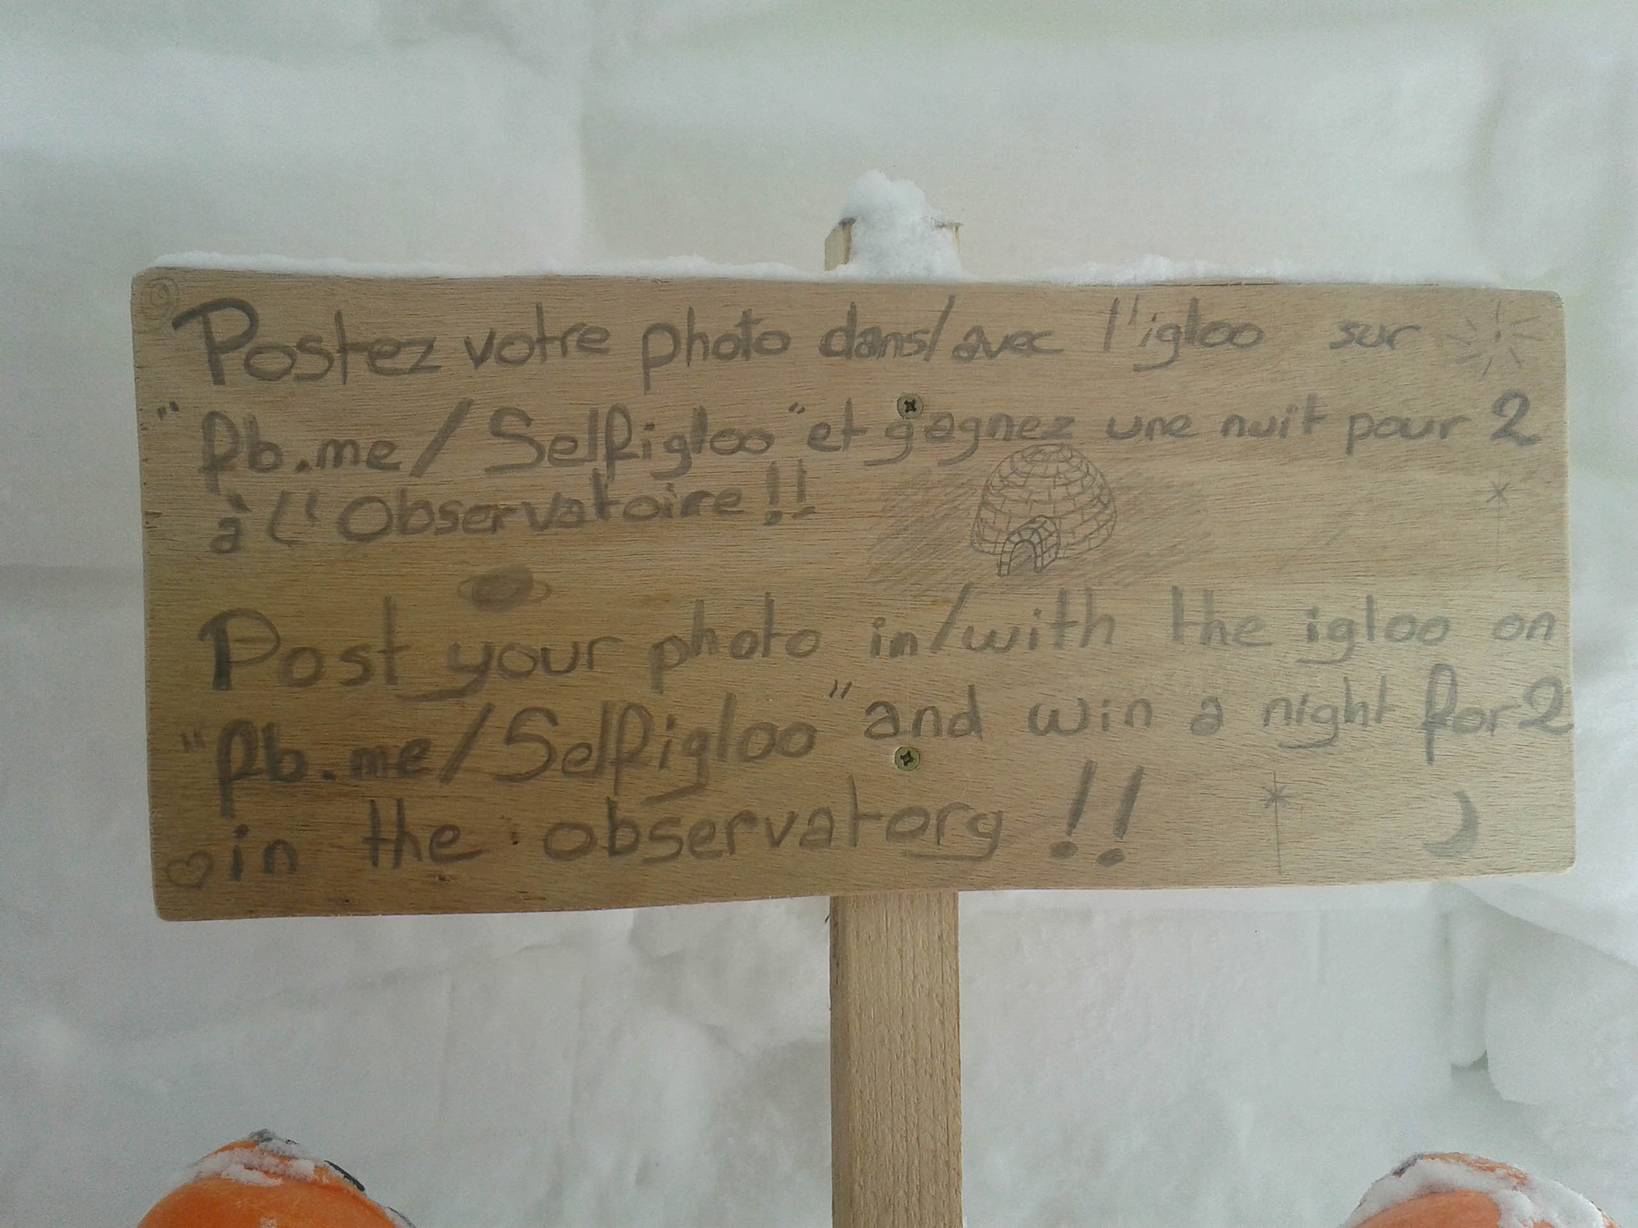 Postez votre photo dans/avec l'igloo sur
"fb.me/Selfigloo" et gagnez une nuit pour 2
à l'Observatoire !!
Post your photo in/with the igloo on
"fb.me/Selfigloo" and win a night for 2
in the observatory !!